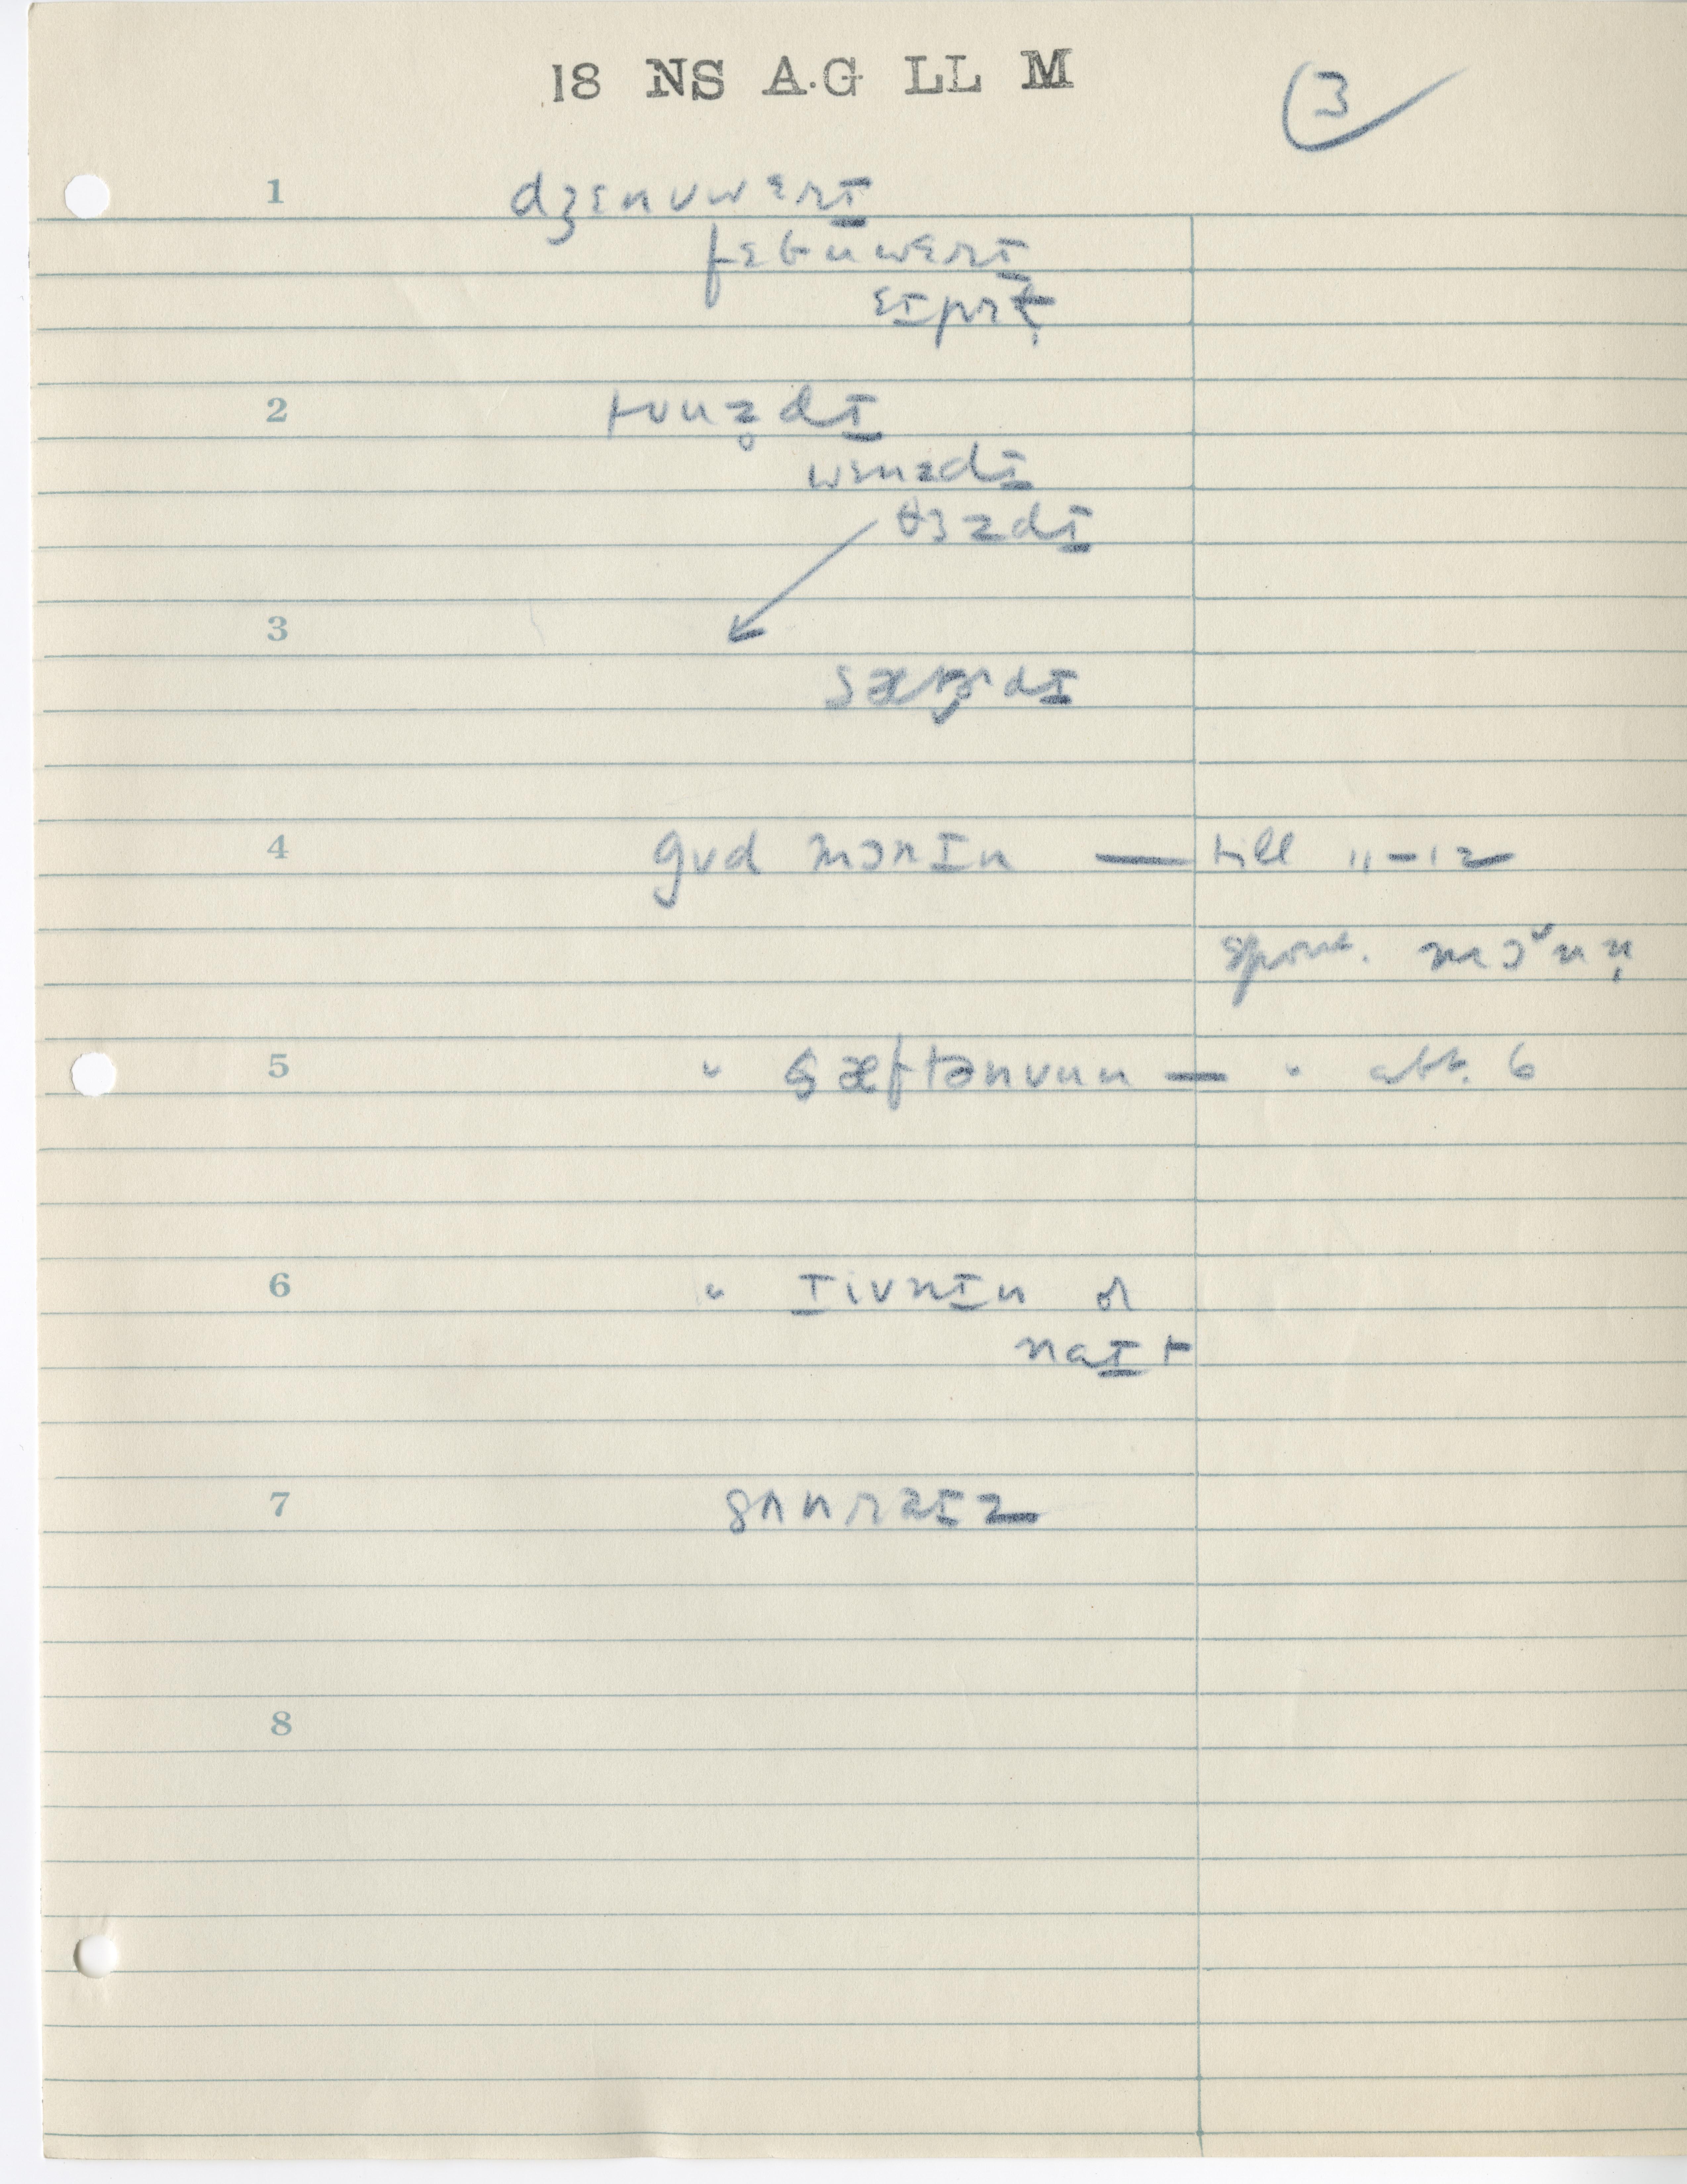 18 NS A.G LL M
3
1 dʒɛnʊwɛrɪ
fɛbuwɛrɪ
ɛɪprɫ̩
2 tuuz̥dɪ
wɛnzdɪ
θɜzdɪ
3
4 gʊd mɔnɪn — till 11-12
spont. mɔˇnn̩
5 " æftənuun — " abt. 6
6 " ɪivnɪn or
naɪt
7 sʌnraɪz
8